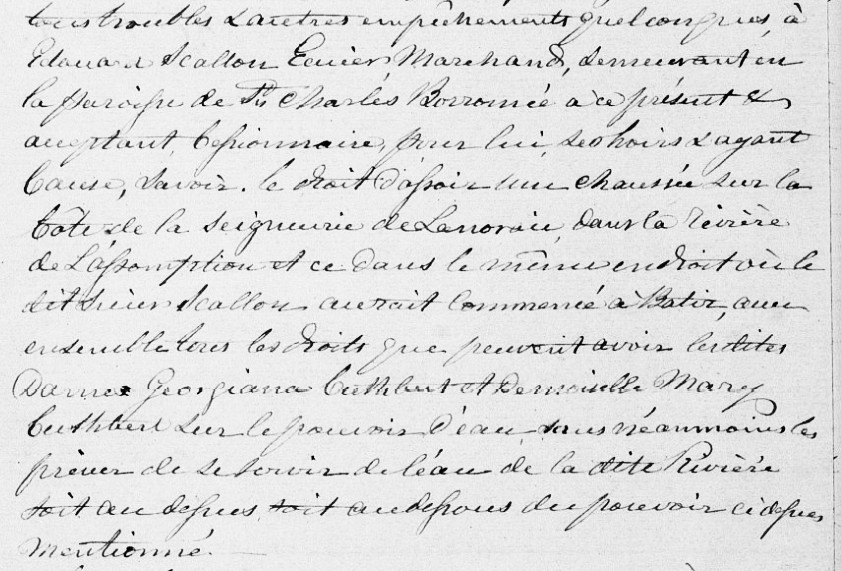 tous troubles & autres empêchements quelconques, à
Edouard Scallon Ecuier Marchand, demeurant en
la paroisse de St. Charles Borromée à ce présent &
acceptant, Cessionnaire, pour lui, ses hoirs & ayant
Cause, Savoir. le droit d'assoir une chaussée sur la
Côte de la Seigneurie de Lanoraie, dans la rivière
de L'assomption et ce dans le même endroit où le
dit Sieur Scallon aurait commencé à Batir, avec
ensemble tous les droits que peuvent avoir lesdites
Dame Georgiana Cuthbert et Demoiselle Mary
Cuthbert sur le pouvoir d'eau, sans néanmoins les
priver de se servir de l'eau de la dite Rivière
soit au dessus, soit au dessous du pouvoir ci dessus
mentionné.